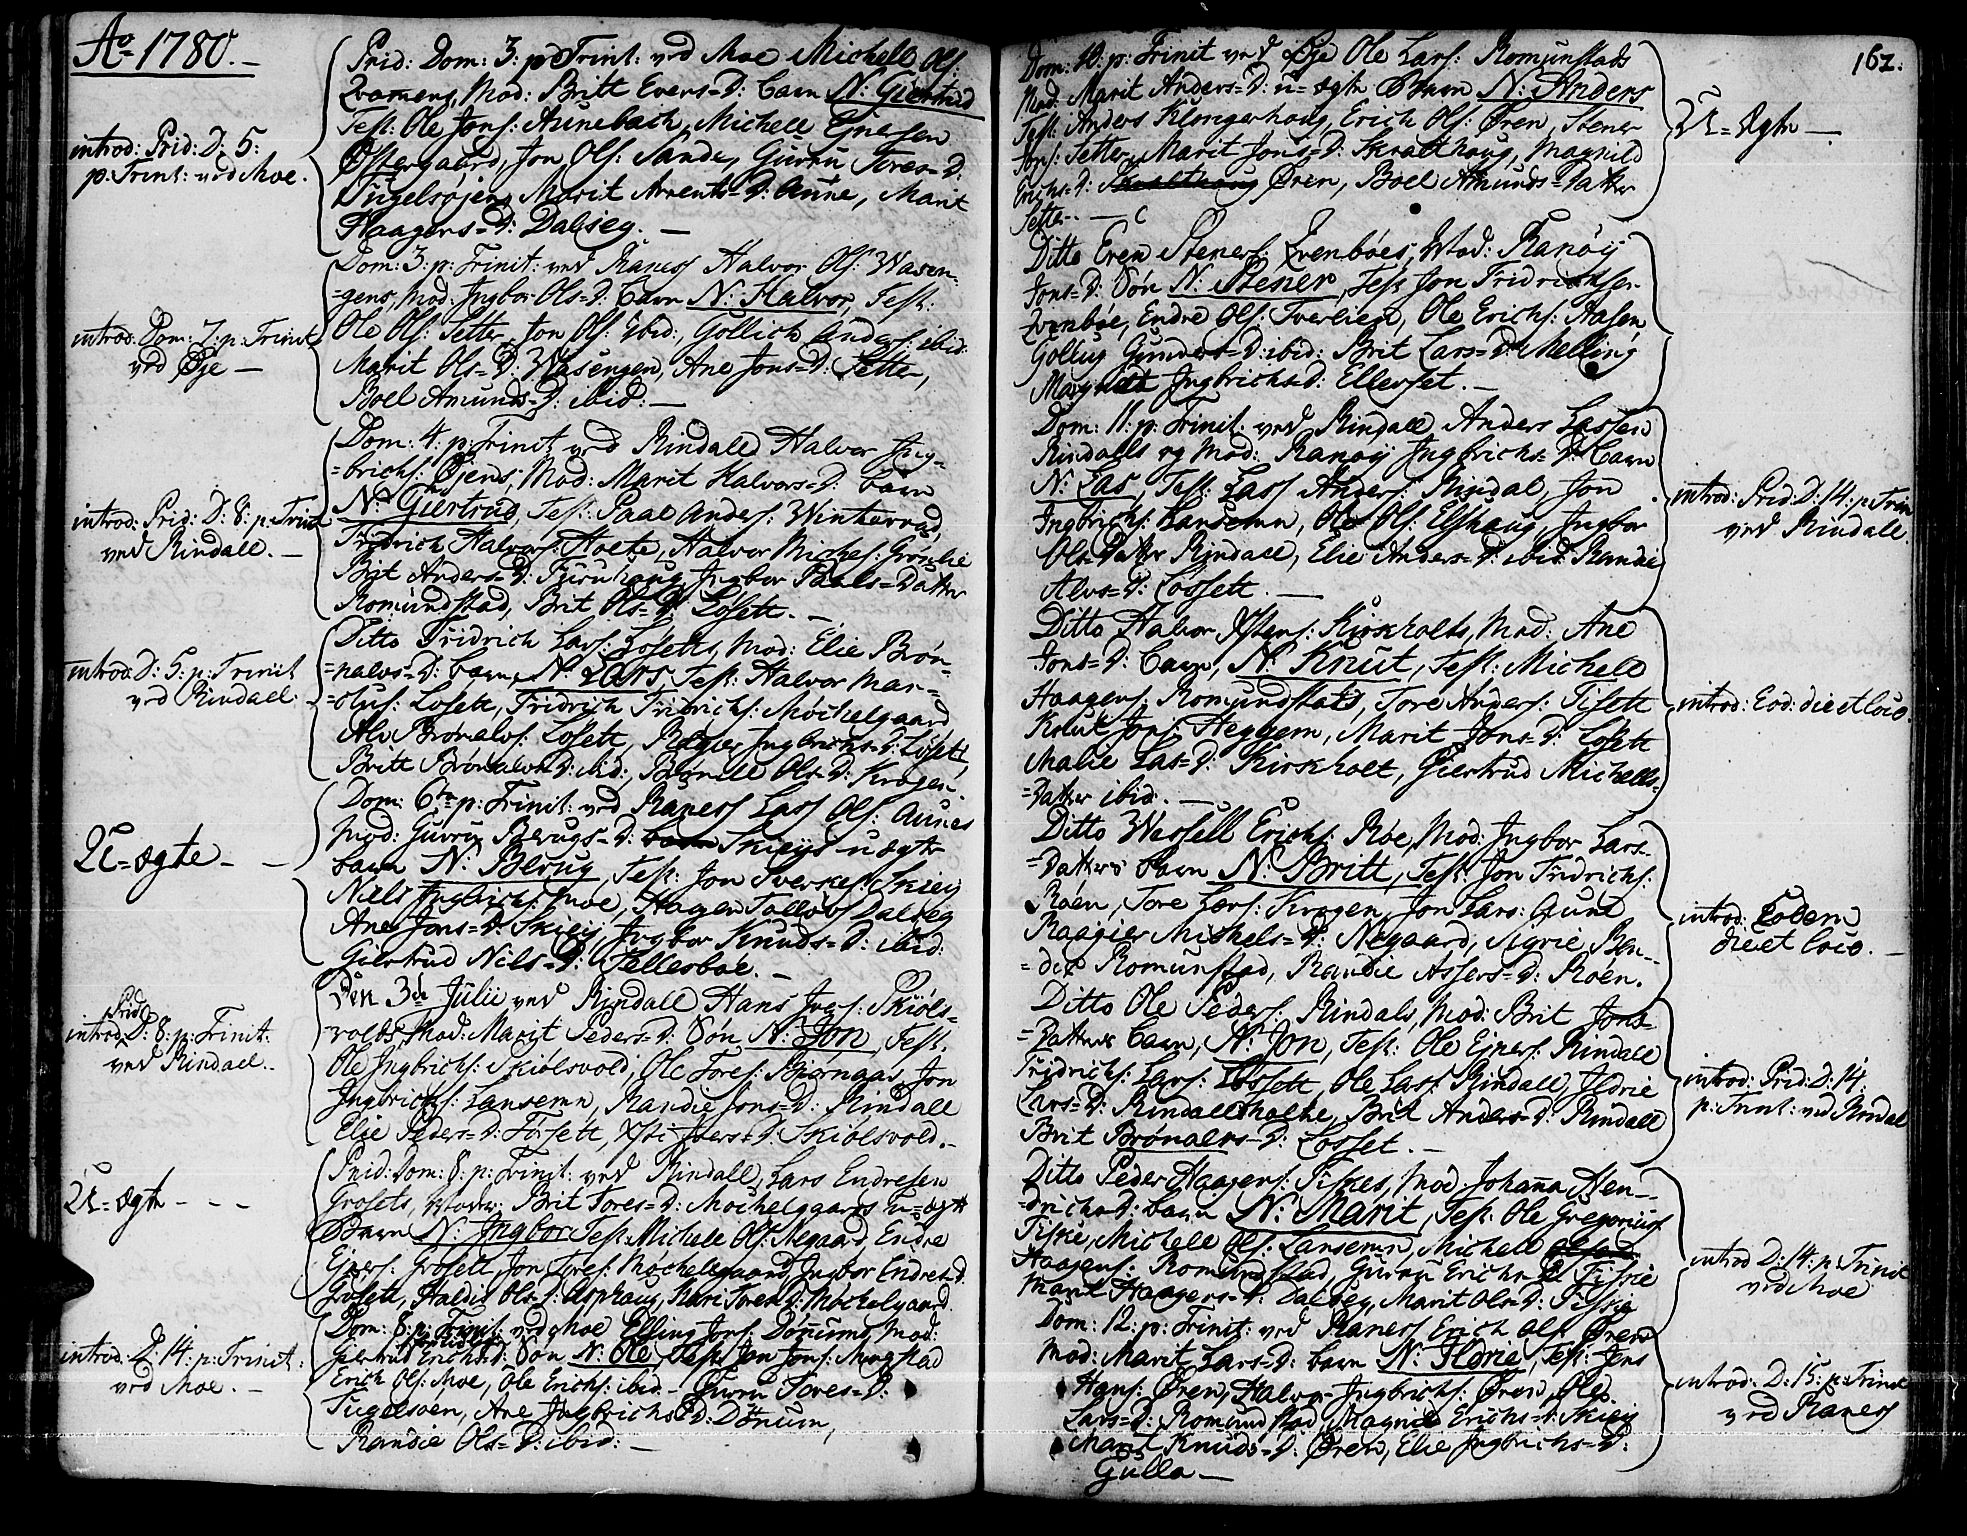 Ao 1780.-
Prid: Dom: 3: p: Trinit: ved Moe Michell Ols:
Qvamens, Mod: Britt Evers=D: barn N: Giertrud
Test: Ole Jons: Aunebach, Michell Ejnersen
Østergaard, Jon Ols: Sande, Guru Tores=D:
Fugelsøjen, Marit Arents=D: Aune, Marit
Haagens=D: Dalseg. -
introd: Prid: D: 5:
p: Trinit: ved Moe.
Dom: 3: p: Trinit: ved Ranes Halvor Ols: Wasen=
=gens, Mod: Ingbor Ols=D: barn N: Halvor, Test:
Ole Ols: Setter, Jon Ols: ibid:, Gollich Anders: ibid:
Marit Ols=D: Wasengen, Ane Jons=D: Setter,
Boel Amunds=D: ibid: -
introd: Dom: 7: p: Trinit
ved Øje -
Dom: 4: p: Trinit: ved Rindall Halvor Ing=
=brichs: Øjens, Mod: Marit Halvors=D: barn
N: Giertrud, Test: Paal Anders: Winterved,
Fridrich Halvors: Holte, Halvor Michels: Grønlie
Brit Anders=D: Furuhaug, Ingbor Paals=Datter
Romundstad, Brit Ols=D: Losett. -
introd: Prid: D: 8: p: Trinit
ved Rindall. -
Ditto Fridrich Lars: Losetts, Mod: Elie Brøn=
=nalvs=D: barn, N: Lars, Test: Halvor Mar=
=olus: Losett, Fridrich Fridrichs: Møchelgaard
Alv Brønalvs: Losett, Ragier Ingbrichs=D: Losett,
Britt Brønalvs=D: ibid:, Brønild Ols=D: Krogen.
introd: D: 5: p: Trinit
ved Rindall.
Dom: 6te p: Trinit: ved Ranes Lars Ols: Aunes
Mod: Guru Berugs=D: Skieys u=ægte
barn N: Berug, Test: Jon Sverkes: Skiey
Niels Ingbrichs: Moe, Haagen Tollevs: Dalseg
Ane Jons=D: Skiey, Ingbor Knuds=D: ibid:
Giertrud Nils=D: Tellesbøe. -
U=ægte - -
Den 3de Julii ved Rindall Hans Ings: Skiøls=
volds, Mod: Marit Peders=D: Søn N: Jon, Test:
Ole Ingbrichs: Skiølsvold, Ole Tores: Biørnaas, Jon
Ingbrichs: Lansemn, Randie Jons=D: Rindall
Elie Peders=D: Torsett, Ifers=D: Skiølsvold.-
introd: Prid D: 8: p: Trinit:
ved Rindall..
Prid: Dom: 8: p: Trinit: ved Rindall, Lars Endresen
Grosets, Moder: Brit Tores=D: Møchelgaards u=ægte
Barn N: Ingbor Test: Michell Ols: Negaard, Endre
Ejners: Grosett, Jon Tores: Møchelgaard, Ingbor Endres=D:
Grosett, Haldis Ols=D: Asphaug, Mari Tores=D: Møchelgaard.
U=ægte - - -
Dom: 8: p: Trinit ved Moe Elling Jons: Dønums, Mod:
Giertrud Erichs=D: Søn N: Ole, Test: Jon Jons: Mogstad
Erich Ols: Moe, Ole Erichs: ibid. - Guru Tores=D:
Fugelsøen, Ane Ingbrichs=D: Dønum,
Randie Ols=D: ibid: -
introd: D: 14: p: Trinit:
ved Moe. -
162.
Dom: 10: p: Trinit ved Øje Ole Lars: Romunstads
Mod: Marit Anders=D: u=ægte Barn N: Anders
Test: Anders Klongerhaug, Erich Ols: Øren, Stener
Jons: Setter, Marit Jons=D: Skralthaug, Magnild
Erichs=D: Øren, Boel Amunds=Datter
Setter. -
U=ægte -
Ditto Even Steners: Qvenbøes, Mod: Ranøy
Jons=D: Søn N: Stener, Test: Jon Fridrichsen
Qvenbøe, Endre Ols: Tverlien, Ole Erichs: Aasen,
Gollug Gunders=D: ibid: Brit Lars=D: Melling
Magnild Ingbrichs=D: Ellevset. -
Dom: 11: p: Trinit: ved Rindall Anders Lassen
Rindalls og Mod: Ranøy Ingbrichs=D: barn
N: Las, Test: Lars Anders: Rindal, Jon
Ingbrichs: Lansemn, Ole Ols: Elshaug, Ingbor
Ols=Datter Rindall, Elie Anders=D: ibid: Randie
Alvs=D: Lossett. -
introd: Prid: D: 14: p: Trin
ved Rindall
Ditto Halvor Istens: Kirkholts, Mod: Ane
Jons=D: barn, N: Knut, Test: Michell
Haagens: Romundstads, Tore Anders: Tisett
Knut Jons: Heggem, Marit Jons=D: Losett
Malie Las=D: Kirkholt, Giertrud Michells=
=Datter ibid. -
introd: Eod: die et loco.
Ditto Wassell Erichs: Røe, Mod: Ingbor Lars=
=Datters barn N: Britt, Test: Jon Fridrichs:
Røen, Tore Lars: Krogen, Jon Lars: Aune
Raagier Michels=D: Negaard, Sigrie
Romunstad, Randie Assers=D: Røen.
introd: Eodem
die et loco. -
Ditto Ole Peders: Rindals, Mod: Brit Jons=
=Datters barn, N: Jon, Test: Ole Ejners: Rindall
Fridrichs: Lars: Lossett, Ole Lars: Rindall, Ildrie
Lars=D: Rindallsholte, Brit Anders=D: Rindall
Brit Brønalvs=D: Losset. -
introd: Prid: D: 14:
p: Trinit: ved Rindal
Ditto Peder Haagens: Fiskes, Mod: Johanna Hen=
=drichs=D: barn N: Marit, Test: Ole Gregorius:
Fiske, Michell Ols: Lansemn, Michell
Haagens: Romundstad, Guru Erichs=D: Fiske
Marit Haagens=D: Dalseg, Marit Ols=D: Fiske
introd D: 14: p: Trinit
ved Moe
Dom: 12: p: Trinit: ved Ranes Erich Ols: Ørens
Mod: Marit Lars=D: barn N: Ildrie, Test: Jens
Hans: Øren, Halvor Ingbrichs: Øren, Oled
Lars=D: Romundstad, Magnild Erichs=D: Skiey
Marit Knuds=D: Øren, Elie Ingbrichs=D:
Gulla -
introd: D: 15: p: Trinit
ved Ranes